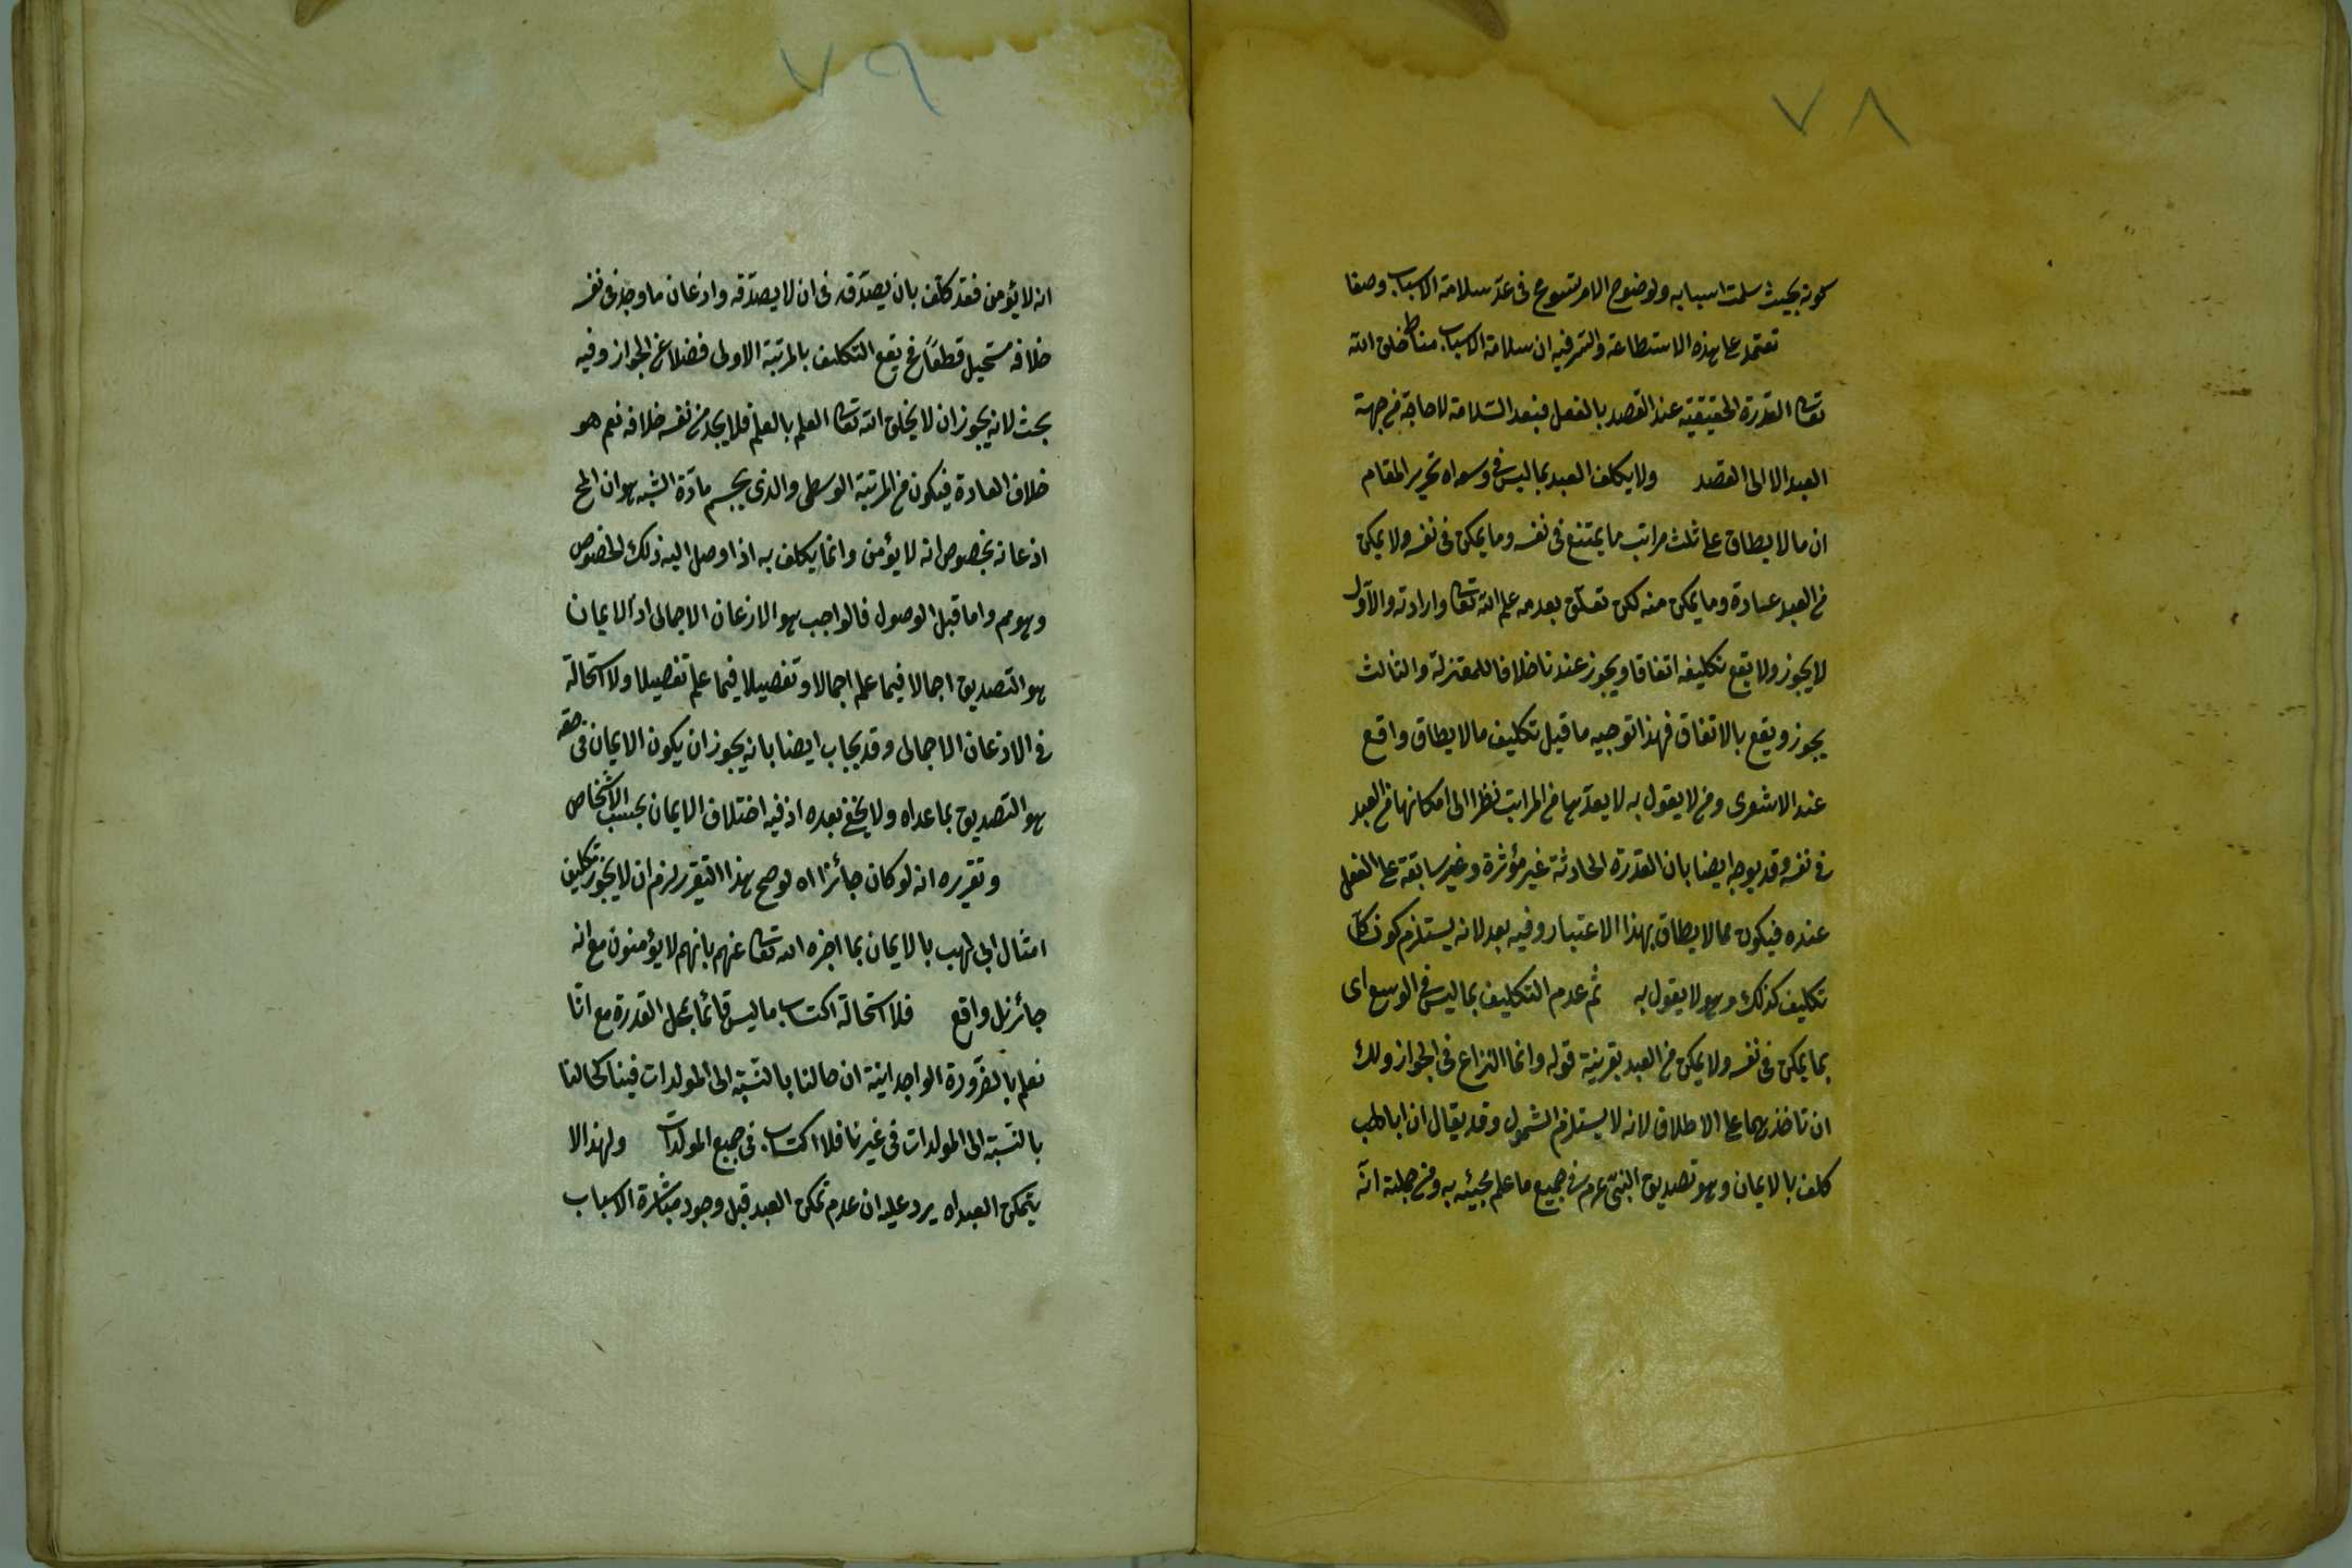 ٧٨
كونه بحيث سلمت اسبابه ولوضوح الامر تسومح فى عدّ سلامة الاسباب وصفا
تعتمد على هذه الاستطاعة والسّر فيه ان سلامة الاسباب مناط خلق الله
تعالى القدرة الحقيقية عند القصد بالفعل فبعد السّلامة لا حاجة من جهة
العبد الا الى القصد ولا يكلف العبد بما ليس فى وسعه اه تحرير المقام
ان ما لا يطاق على ثلث مراتب ما يمتنع فى نفسه وما يمكن فى نفسه ولا يمكن
من العبد عادة وما يمكن منه لكن تعلّق بعدمه علم الله تعالى وارادته والاوّل
لا يجوز ولا يقع تكليفه اتفاقا ويجوز عندنا خلافا للمعتزلة والثالث
يجوز ويقع بالاتفاق فهذا توجيه ما قيل تكليف ما لا يطاق واقع
عند الاشعرى ومن لا يقول به لا يعدّها من المراتب نظرا الى امكانها من العبد
فى نفسه وقد يوجه ايضا بان القدرة الحادثة غير مؤثرة وغير سابقة على الفعل
عنده فيكون مما لا يطاق بهذا الاعتبار وفيه بعد لانه يستلزم كون كل
تكليف كذلك وهو لا يقول به ثم عدم التكليف بما ليس فى الوسع اى
بما يمكن فى نفسه ولا يمكن من العبد بقرينة قوله وانما النزاع فى الجواز ولك
ان تاخذهما على الاطلاق لانه لا يستلزم الشمول وقد يقال ان ابا لهب
كلف بالايمان وهو تصديق النبىّ عم فى جميع ما علم مجيئه به ومن جملته انّه
٧٩
انه لا يؤمن فقد كلّف بان يصدّقه فى ان لا يصدّقه واذعان ما وجد فى نفسه
خلافه مستحيل قطعًا فح يقع التكليف بالمرتبة الاولى فضلا عن الجواز وفيه
بحث لانه يجوز ان لا يخلق الله تعالى العلم بالعلم فلا يجد من نفسه خلافه نعم هو
خلاف العادة فيكون من المرتبة الوسطى والذى يحسم مادّة الشبهة هو ان المح
اذعانه بخصوص انه لا يؤمن وانما يكلف به اذا وصل اليه ذلك الخصوص
وهو مم واما قبل الوصول فالواجب هو الاذعان الاجمالى اذ الايمان
هو التصديق اجمالا فيما علم اجمالا وتفصيلا فيما علم تفصيلا ولا استحالة
فى الاذعان الاجمالى وقد يجاب ايضا بانه يجوز ان يكون الايمان فى حقه
هو التصديق بما عداه ولا يخفى بعده اذ فيه اختلاف الايمان بحسب الاشخاص
وتقريره انه لو كان جائزا اه لو صح هذا التقرير لزم ان لا يجوز تكليف
امثال ابى لهب بالايمان بما اخبره الله تعالى عنهم بانهم لا يؤمنون مع انه
جائز بل واقع فلاستحالة اكتساب ما ليس قائما بمحل القدرة مع انّا
نعلم بالضرورة الوجدانية ان حالنا بالنسبة الى المولدات فينا كحالنا
بالنسبة الى المولدات فى غيرنا فلا اكتساب فى جميع المولدات ولهذا لا
يتمكن العبد اه يرد عليه ان عدم تمكن العبد قبل وجود مباشرة الاسباب